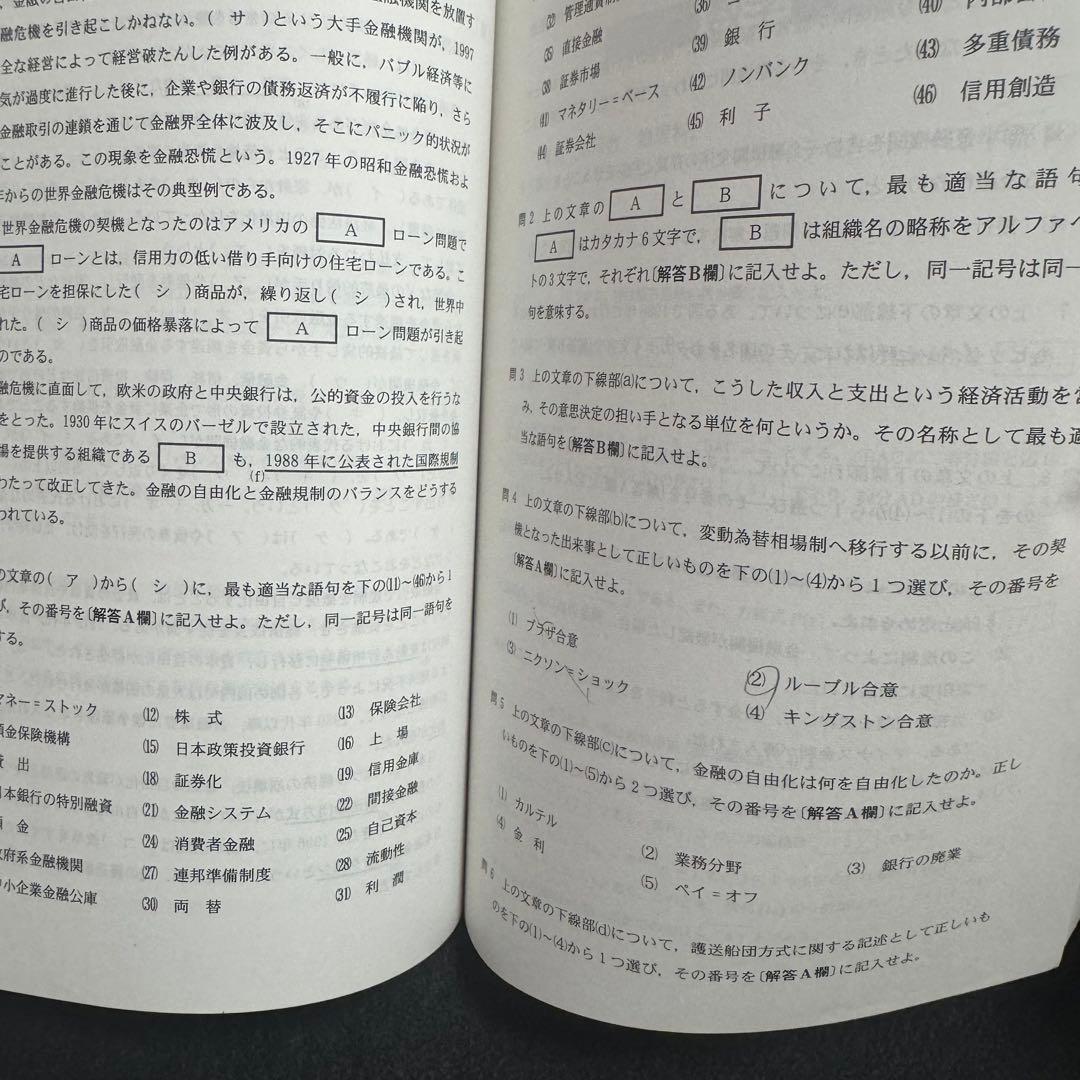 金融機関を放置す
融危機を引き起こしかねない。(サ)という大手金融機関が，1997
全な経営によって経営破たんした例がある。一般に，バブル経済等に
気が過度に進行した後に，企業や銀行の債務返済が不履行に陥り，さら
金融取引の連鎖を通じて金融界全体に波及し，そこにパニック的状況が
ことがある。この現象を金融恐慌という。1927年の昭和金融恐慌およ
年からの世界金融危機はその典型例である。
世界金融危機の契機となったのはアメリカの A ローン問題で
A ローンとは，信用力の低い借り手向けの住宅ローンである。こ
宅ローンを担保にした(シ)商品が，繰り返し(シ)され，世界中
れた。(シ)商品の価格暴落によって A ローン問題が引き起
のである。
融危機に直面して，欧米の政府と中央銀行は，公的資金の投入を行うな
をとった。1930年にスイスのバーゼルで設立された，中央銀行間の協
場を提供する組織である B も，1988年に公表された国際規制
(f)
わたって改正してきた。金融の自由化と金融規制のバランスをどうする
われている。
の文章の(ア)から(シ)に，最も適当な語句を下の(11)～(46)から1
び，その番号を〔解答A欄〕に記入せよ。ただし，同一記号は同一語句を
する。
マネー＝ストック (12) 株式 (13) 保険会社
預金保険機構 (15) 日本政策投資銀行 (16) 上場
貸出 (18) 証券化 (19) 信用金庫
日本銀行の特別融資 (21) 金融システム (22) 間接金融
預金 (24) 消費者金融 (25) 自己資本
政府系金融機関 (27) 連邦準備制度 (28) 流動性
中小企業金融公庫 (30) 両替 (31) 利潤
(32) 管理通貨 (36) (40) 内部
(35) 直接金融 (39) 銀行 (43) 多重債務
(38) 証券市場 (42) ノンバンク (46) 信用創造
(41) マネタリー＝ベース (45) 利子
(44) 証券会社
問2 上の文章の A と B について，最も適当な語句
A はカタカナ6文字で， B は組織名の略称をアルファベ
トの3文字で，それぞれ〔解答B欄〕に記入せよ。ただし，同一記号は同一
句を意味する。
問3 上の文章の下線部(a)について，こうした収入と支出という経済活動を営
み，その意思決定の担い手となる単位を何というか。その名称として最も適
当な語句を〔解答B欄〕に記入せよ。
問4 上の文章の下線部(b)について，変動為替相場制へ移行する以前に，その契
機となった出来事として正しいものを下の(1)～(4)から1つ選び，その番号を
〔解答A欄〕に記入せよ。
(1) プラザ合意 (2) ルーブル合意
(3) ニクソン＝ショック (4) キングストン合意
問5 上の文章の下線部(c)について，金融の自由化は何を自由化したのか。正し
いものを下の(1)～(5)から2つ選び，その番号を〔解答A欄〕に記入せよ。
(1) カルテル (2) 業務分野 (3) 銀行の廃業
(4) 金利 (5) ペイ＝オフ
問6 上の文章の下線部(d)について，護送船団方式に関する記述として正しいも
のを下の(1)～(4)から1つ選び，その番号を〔解答A欄〕に記入せよ。